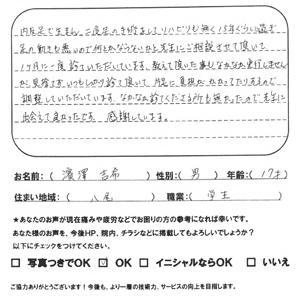 内反足で生まれ、二度足の手術をしてリハビリも無く15年くらい過ぎ
足の動きも悪いので何とかならないかと先生にご相談させて頂いて
1ヶ月に一度診ていただいています。教えて頂いた事もなかなか実行しません
が、見捨てずいつもしっかり診て頂いて、腰に負担がかかってたりするので
調整していただいています。なかなか診てくださる所も無かったので先生に
出会えて良かったです。感謝しています。
お名前:( 濱澤 吉希 ) 性別:( 男 ) 年齢:( 17才 )
住まい地域:( 八尾 ) 職業:( 学生 )
★あなたのお声が現在痛みや疲労などでお困りの方の参考になれば幸いです。
あなた様のお声を、今後HP、院内、チラシなどに掲載してもよろしいでしょうか?
以下にチェックをつけてください。
□ 写真つきでOK ☑ OK □ イニシャルならOK □ いいえ
ご協力ありがとうございます!今後も、より一層の技術力、サービスの向上を目指します。